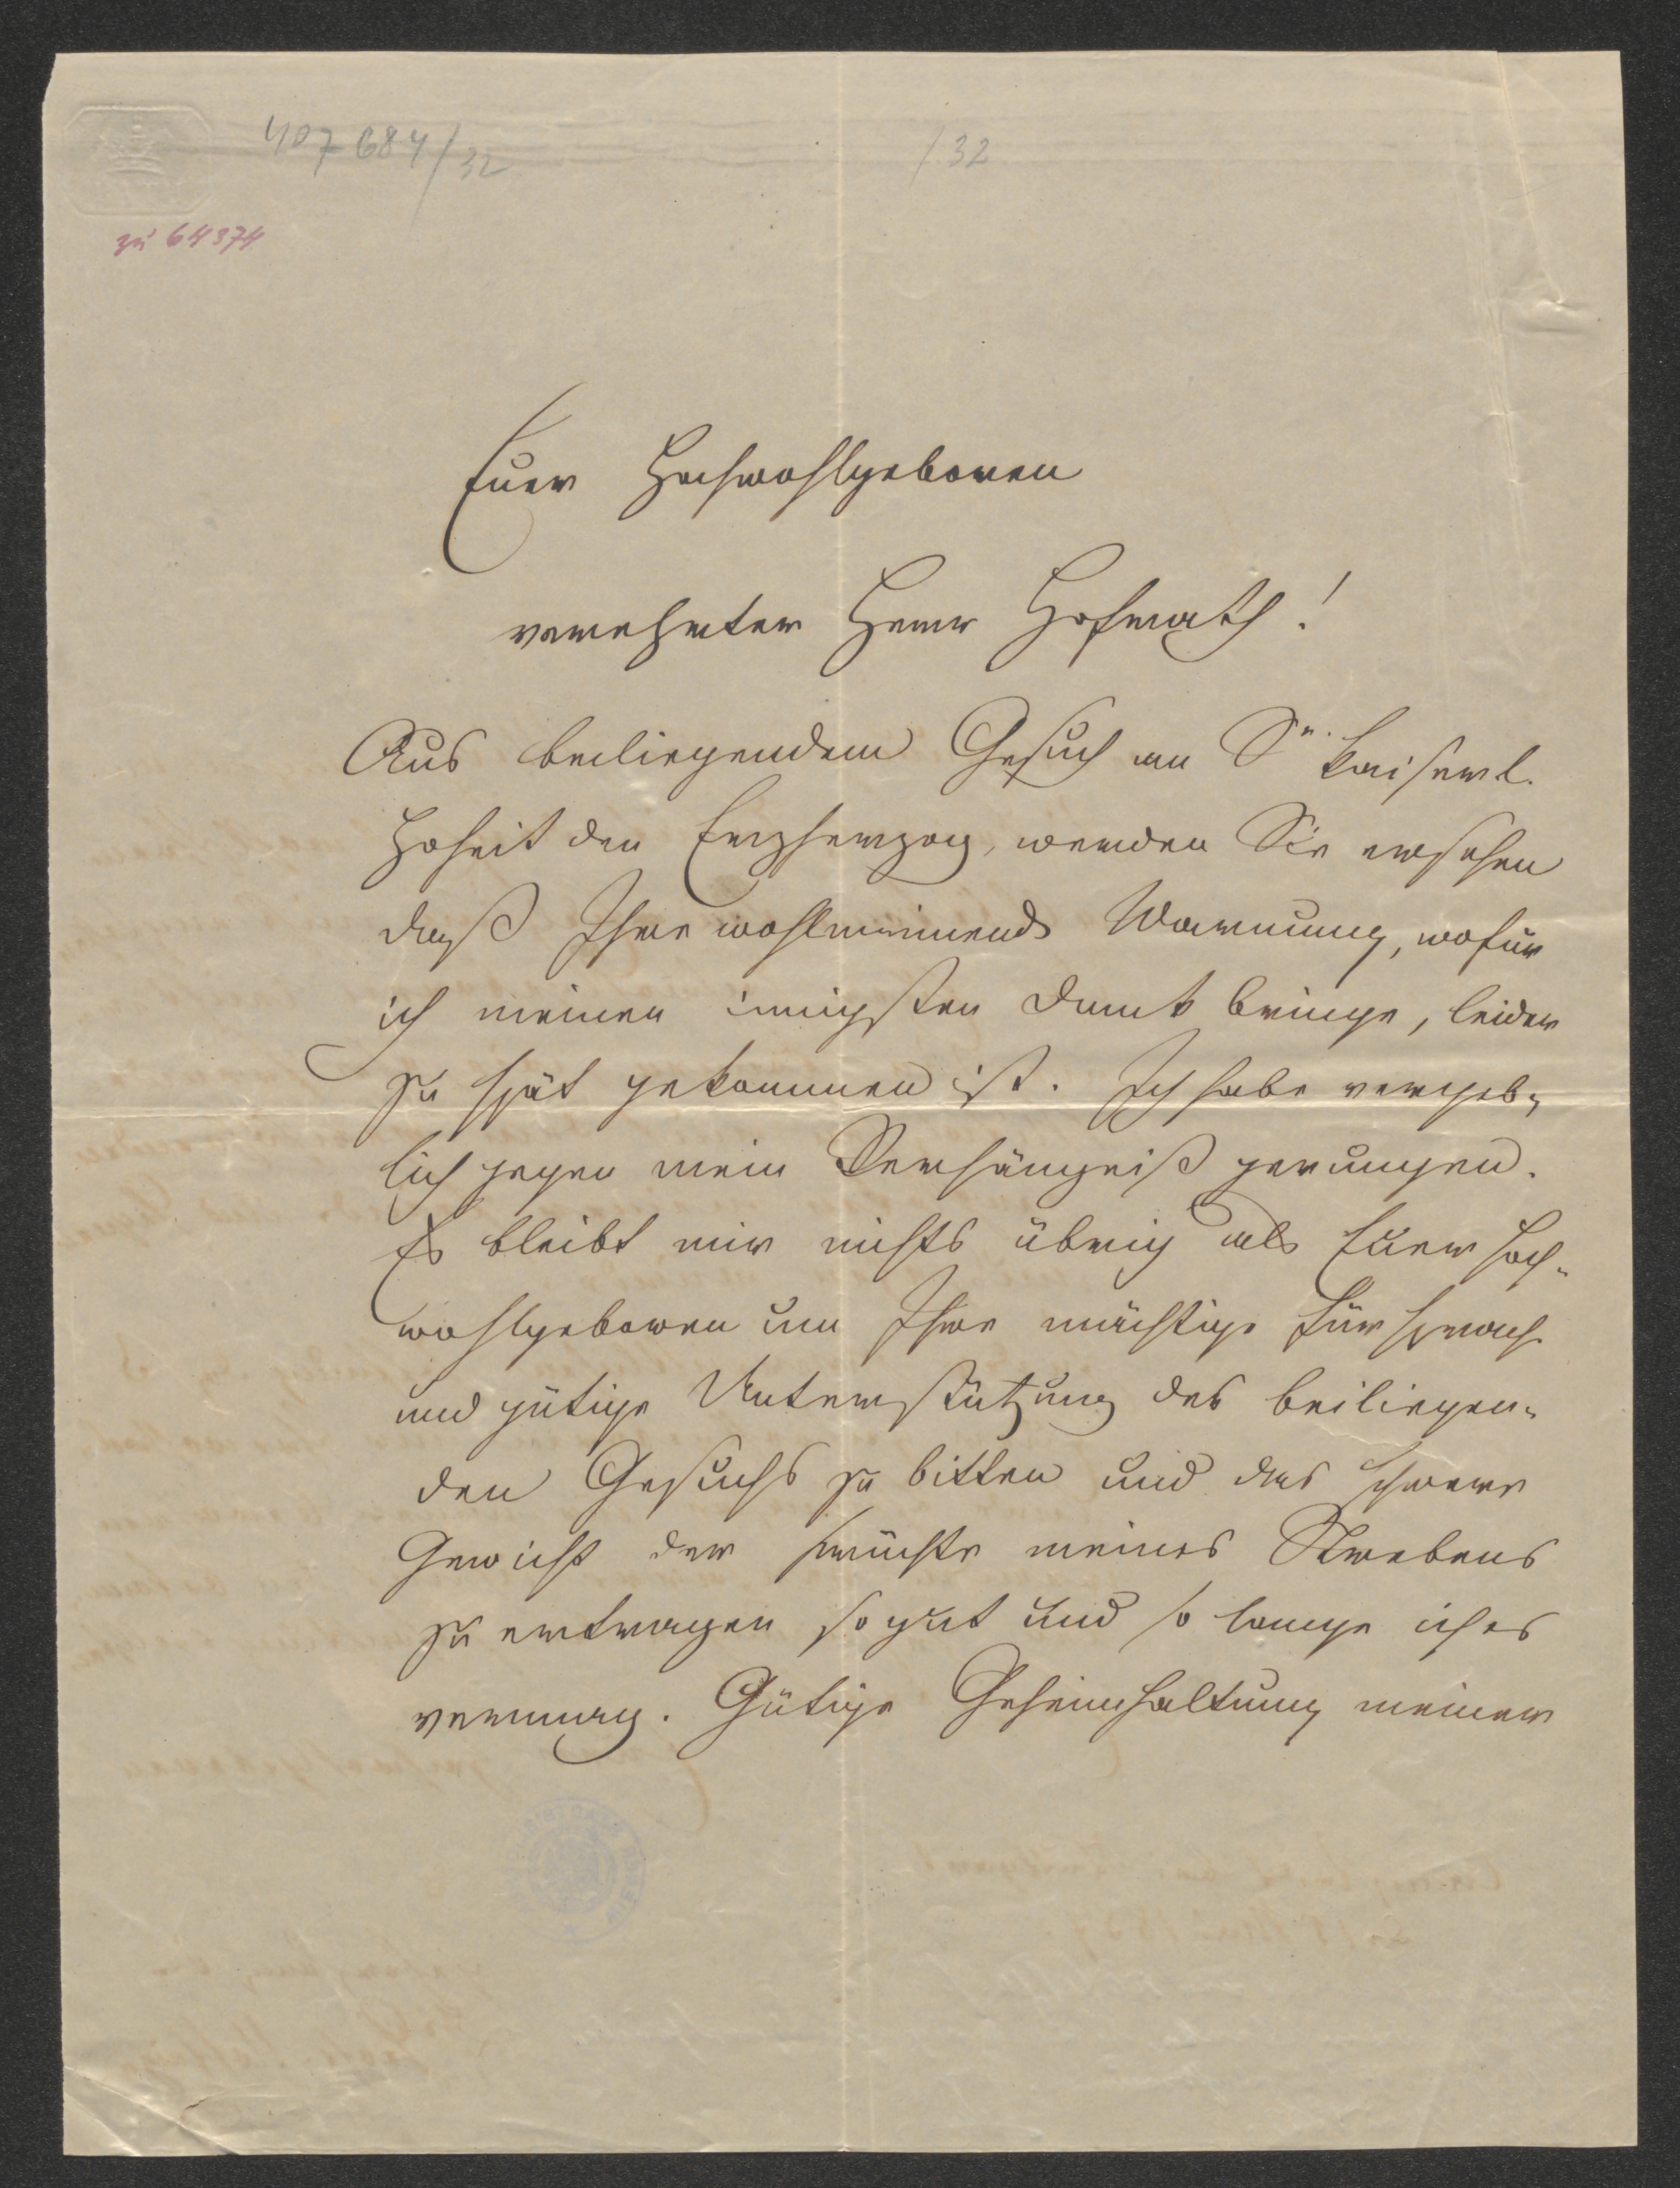 407684/32
/32
zu 64374
Euer Hochwohlgeboren
verehrter Herr Hofrath!
Aus beiliegendem Gesuch an Sr. kaiserl.
Hoheit den Erzherzog, werden Sie ersehen
daß Ihre wohlmeinende Warnung, wofür
ich meinen innigsten Dank bringe, leider
zu spät gekommen ist. Ich habe vergeb-
lich gegen mein Verhängniß gerungen.
Es bleibt mir nichts übrig als Euer Hoch-
wohlgeboren um Ihre mächtige Fürsprache
und gütige Unterstützung des beiliegen-
den Gesuchs zu bitten und das schwere
Gewicht der Früchte meines Strebens
zu ertragen so gut und so lange ich es
vermag. Gütige Geheimhaltung meiner